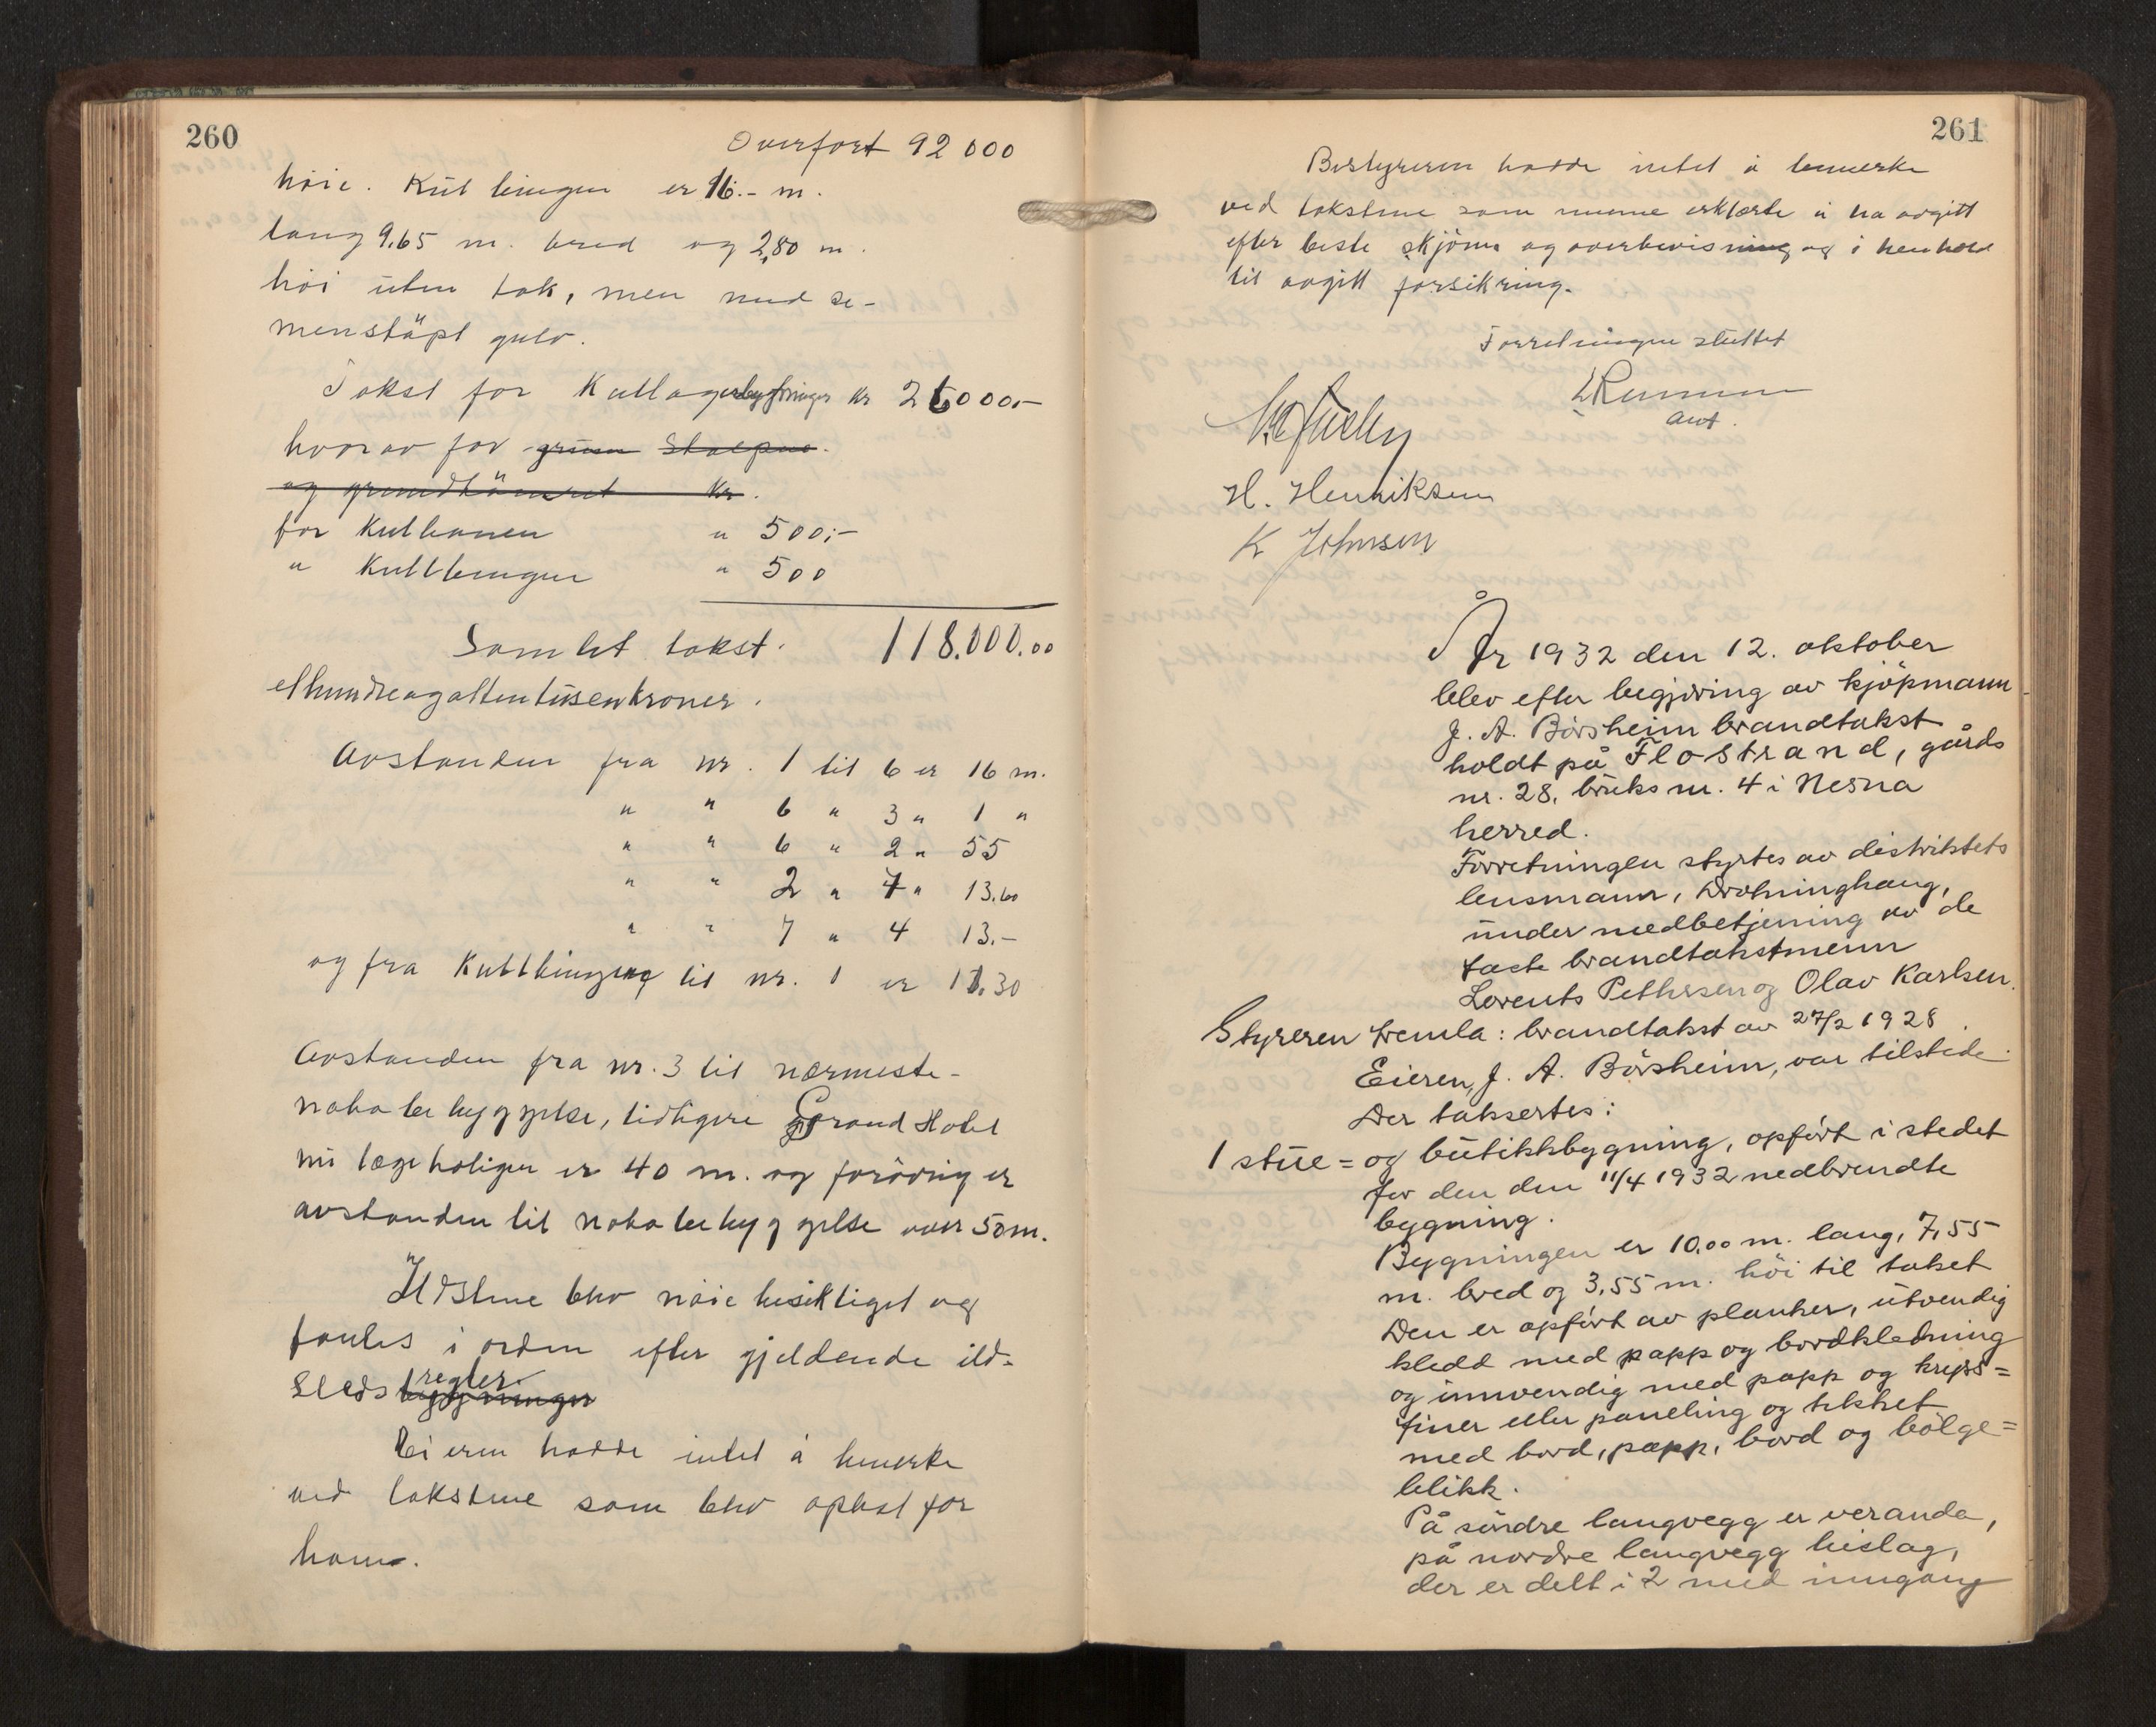 260
Overført 92 000
høie. Kulbingen er 16.- m.
lang 9.65 m. bred og 2,80 m.
høi uten tak, men med se-
menstöpt gulv.
Takst for Kullagerbygninger kr 25000.-
hvorav for grunn Stolpene.
og grundtömret kr.
for Kulbanen " 500.-
" Kullbingen " 500
Samlet takst. 118.000.00
etthundreogattentusenkroner.
Avstanden fra nr. 1 til 6 er 16 m.
" " 6 " 3 " 1 "
" " 6 " 2 " 55
" " 2 " 7 " 13.60
" " 7 " 4 13.-
og fra Kullbingene til nr. 1 er 11.30
Avstanden fra nr. 3 til nærmeste
nabobebyggelse, tidligere Grand Hotel
nu lægeboligen er 40 m. og forövrig er
avstanden til nabobebyggelse over 50 m.
Ildstene blev nöie besiktiget og
fantes i orden efter gjeldende ild-
regler.
steds bygninger
Eieren hadde intet å bemerke
ved takstene som blev oplæst for
ham.
261
Bestyreren hadde intet å bemerke
ved takstene som mennene erklærte å ha avgitt
efter beste skjönn og overbevisning og i henhold
til avgitt forsikring.
Forretningen sluttet
aut.
H. Henriksen
K Johnsen
År 1932 den 12. oktober
blev efter begjæring av kjöpmann
J. A. Börsheim brandtakst
holdt på Flostrand, gårds
nr. 28, bruks nr. 4 i Nesna
herred.
Forretningen styrtes av distriktets
lensmann, Dronninghaug,
under medbetjening av de
faste brandtakstmenn
Lorents Pettersen og Olav Karlsen.
Styreren fremla: brandtakst av 27/2 1928.
Eieren, J. A. Börsheim, var tilstede.
Der taksertes:
1 stue= og butikkbygning, opfört i stedet
for den den 11/4 1932 nedbrendte
bygning.
Bygningen er 10.00 m. lang, 7,55
m. bred og 3,55 m. höi til taket
Den er opfört av planker, utvendig
kledd med papp og bordkledning
og innvendig med papp og kryss=
finer eller paneling og tekket
med bord, papp, bord og bölge=
blikk.
På söndre langvegg er veranda,
på nordre langvegg bislag,
der er delt i 2 med inngang